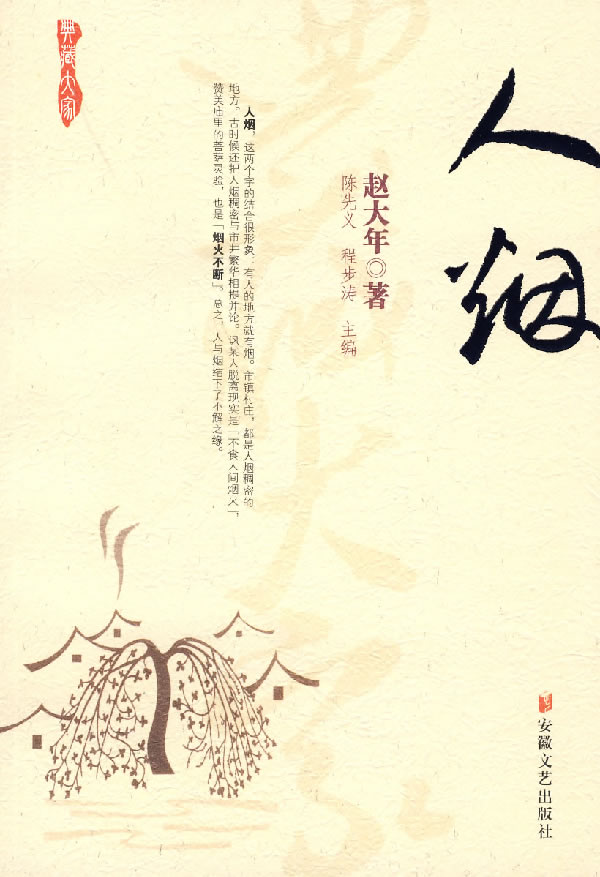 人烟
赵大年◎著
陈先义 程步涛 主编
人烟，这两个字的结合很形象：有人的地方就有烟。市镇村庄，都是人烟稠密的
地方。古时候还把人烟稠密与市井繁华相提并论。讽某人脱离现实是「不食人间烟火」，
赞美庙里的菩萨灵验，也是「烟火不断」。总之，人与烟结下了不解之缘。
典藏大家
安徽文艺出版社